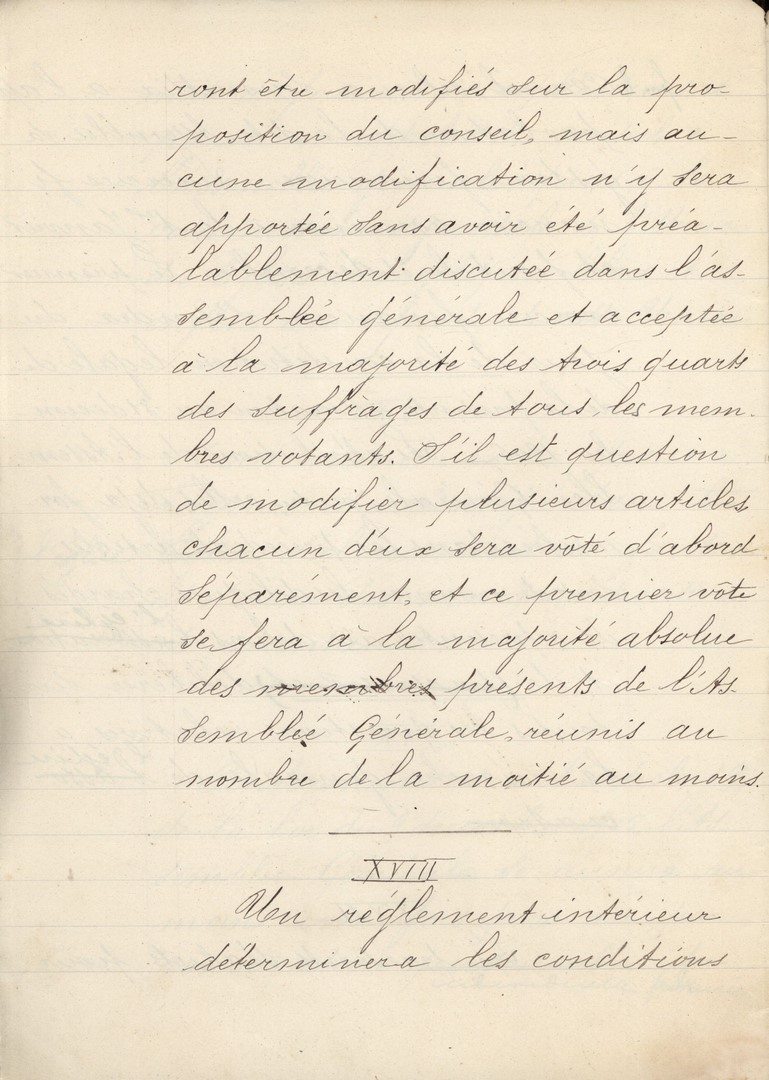 ront être modifiés sur la pro-
position du conseil, mais au-
cune modification n'y sera
apportée sans avoir été préa-
lablement discutée dans l'as-
semblée générale et acceptée
à la majorité des trois quarts
des suffrages de tous les mem-
bres votants. S'il est question
de modifier plusieurs articles,
chacun d'eux sera vôté d'abord
séparément, et ce premier vôte
se fera à la majorité absolue
des membres présents de l'As-
semblée Générale, réunis au
nombre de la moitié au moins.
XVIII
Un réglement intérieur
déterminera les conditions